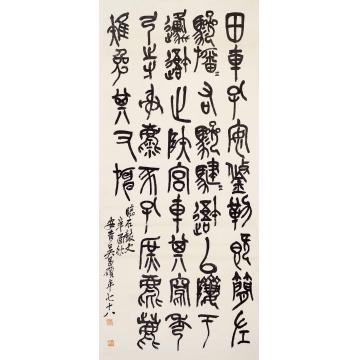 田車孔安鋚勒既簡左
驂旛=右驂騝=避以隮于
邍避止陝宮車其寫秀
弓寺射麋豕孔庶麀鹿
雉兔其又旃
臨石鼓文
辛酉秋
安吉吳昌碩年七十八